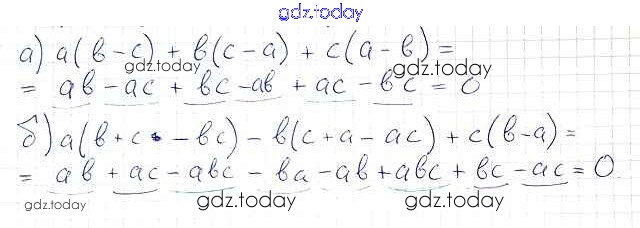 gdz.today
а) a(b-c) + b(c-a) + c(a-b) =
gdz.today gdz.today
= ab - ac + bc - ab + ac - bc = 0
б) a(b+c - bc) - b(c+a-ac) + c(b-a) =
= ab + ac - abc - ba - ab + abc + bc - ac = 0
gdz.today gdz.today gdz.today